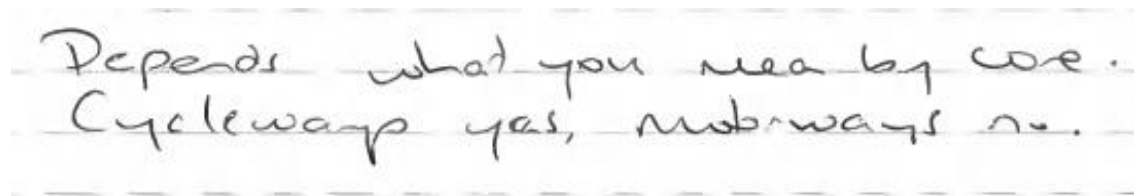 Depends what you mea by core.
Cycleways yes, motorways no.